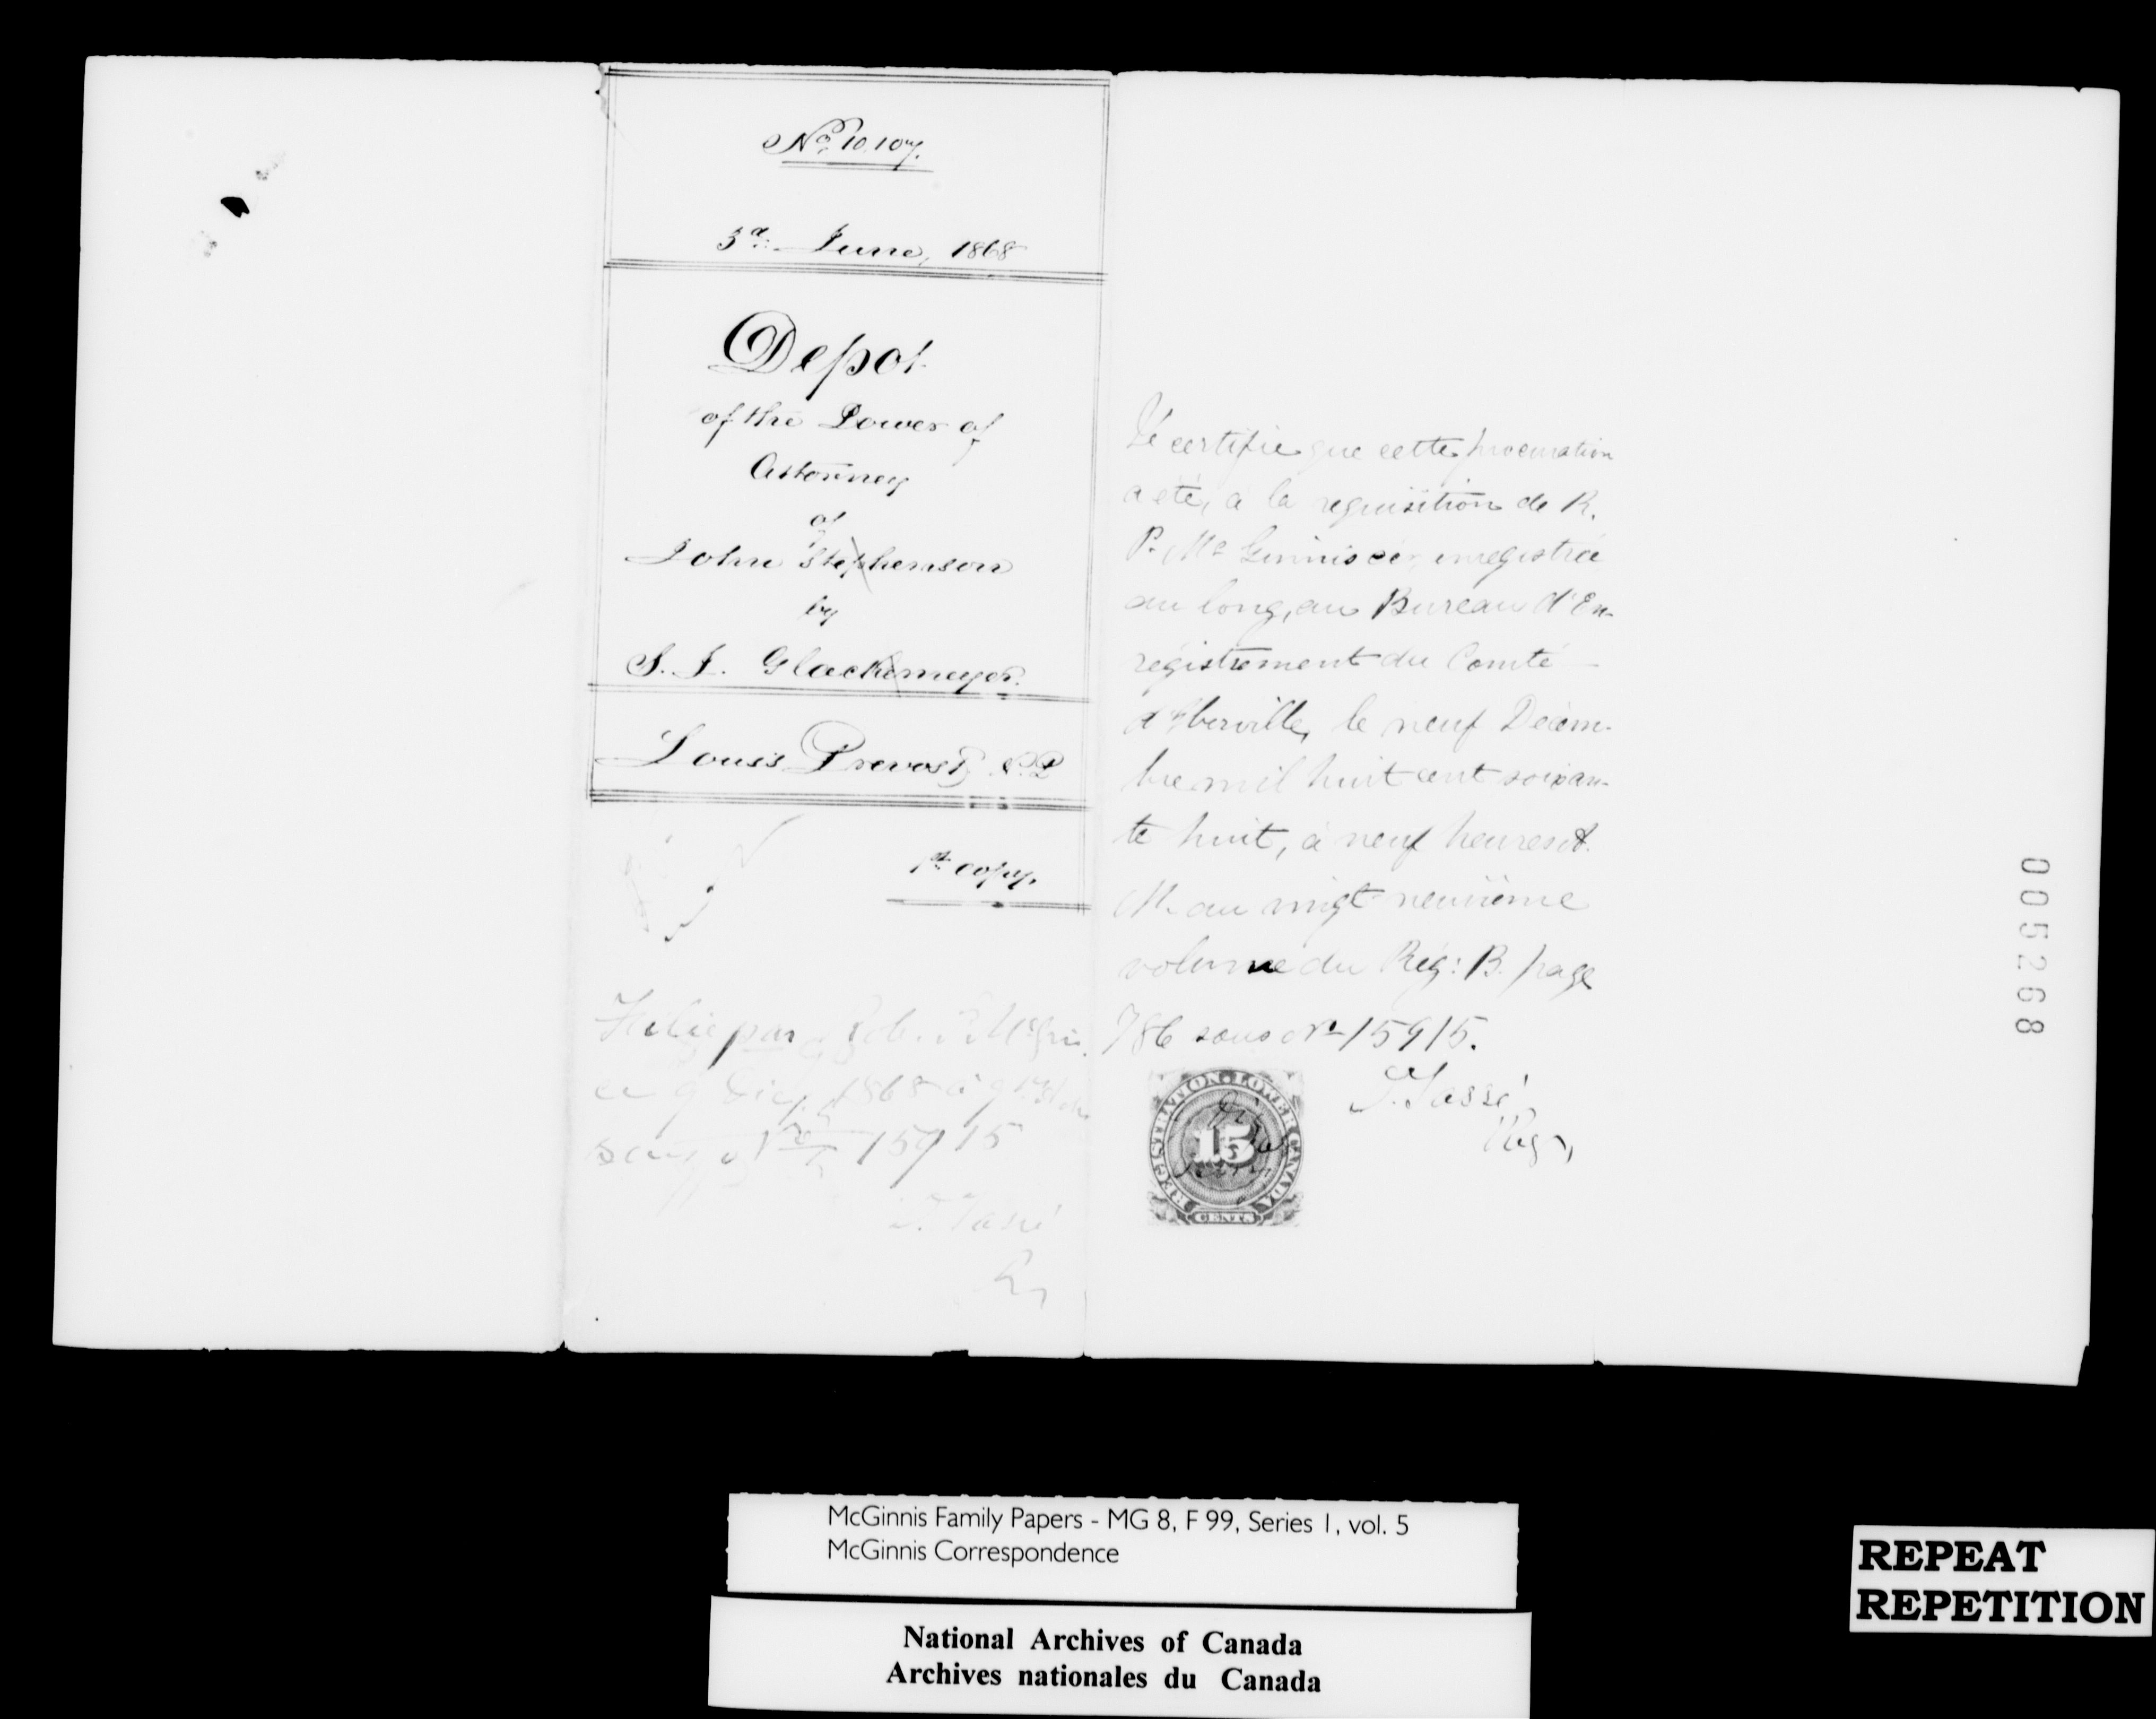 No. 10,107.
3d. June, 1868
Depot
of the Power of
Attorney
of
John Stephenson
by
S. J. Glackemeyer.
Louis Prevost, N.P.
1st copy.
par
ce 9 Dec. 1868 à 9
sous No 15915
T. Tassé
Je certifie que cette procuration
a été, à la requisition de R.
P. Mc Ginnis enregistrée
au long, au Bureau d'En-
régistrement du Comté
d'Iberville, le neuf Décem-
bre mil huit cent soixan-
te huit, à neuf heures A.
M. au vingt neuvième
volume du Rég: B. page
786 sous No 15915.
T. Tassé
Regr,
REGISTRATION. LOWER CANADA
15
CENTS
005268
McGinnis Family Papers - MG 8, F 99, Series 1, vol. 5
McGinnis Correspondence
National Archives of Canada
Archives nationales du Canada
REPEAT
REPETITION